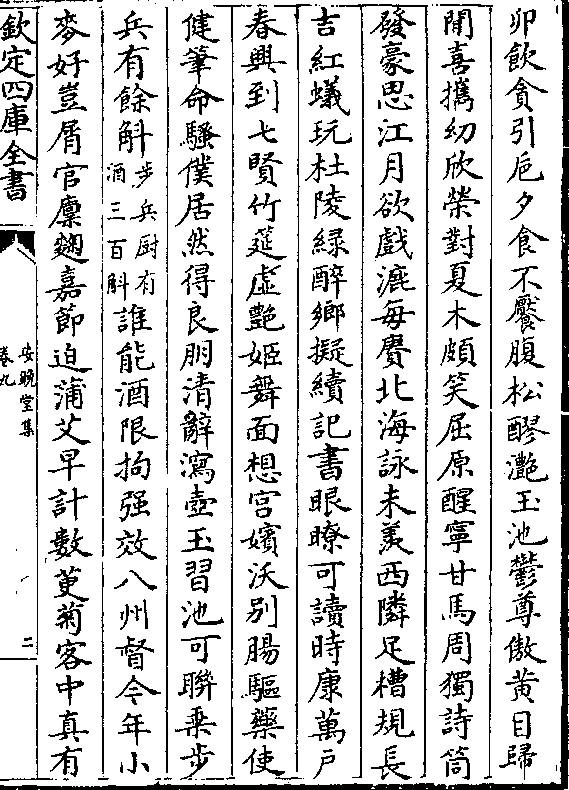 卯飲貪引巵夕食不饜腹松醪灔玉池鬱尊傲黄目歸
閒喜攜幼欣榮對夏木頗笑屈原醒寧甘馬周獨詩筒
發豪思江月欲戲漉每賡北海詠未羨西隣足糟規長
吉紅蟻玩杜陵緑醉鄉擬續記書眼瞭可讀時康萬戶
春興到七賢竹筵虛艷姬舞面想宫嬪沃别腸驅藥使
健筆命騷僕居然得良朋清辭瀉壺玉習池可聯乗步
兵有餘斛步兵厨有酒三百斛誰能酒限拘强效八州督今年小
麥好豈屑官廪麴嘉節迫蒲艾早計數萸菊客中真有
欽定四庫全書
安晚堂集
卷九
二